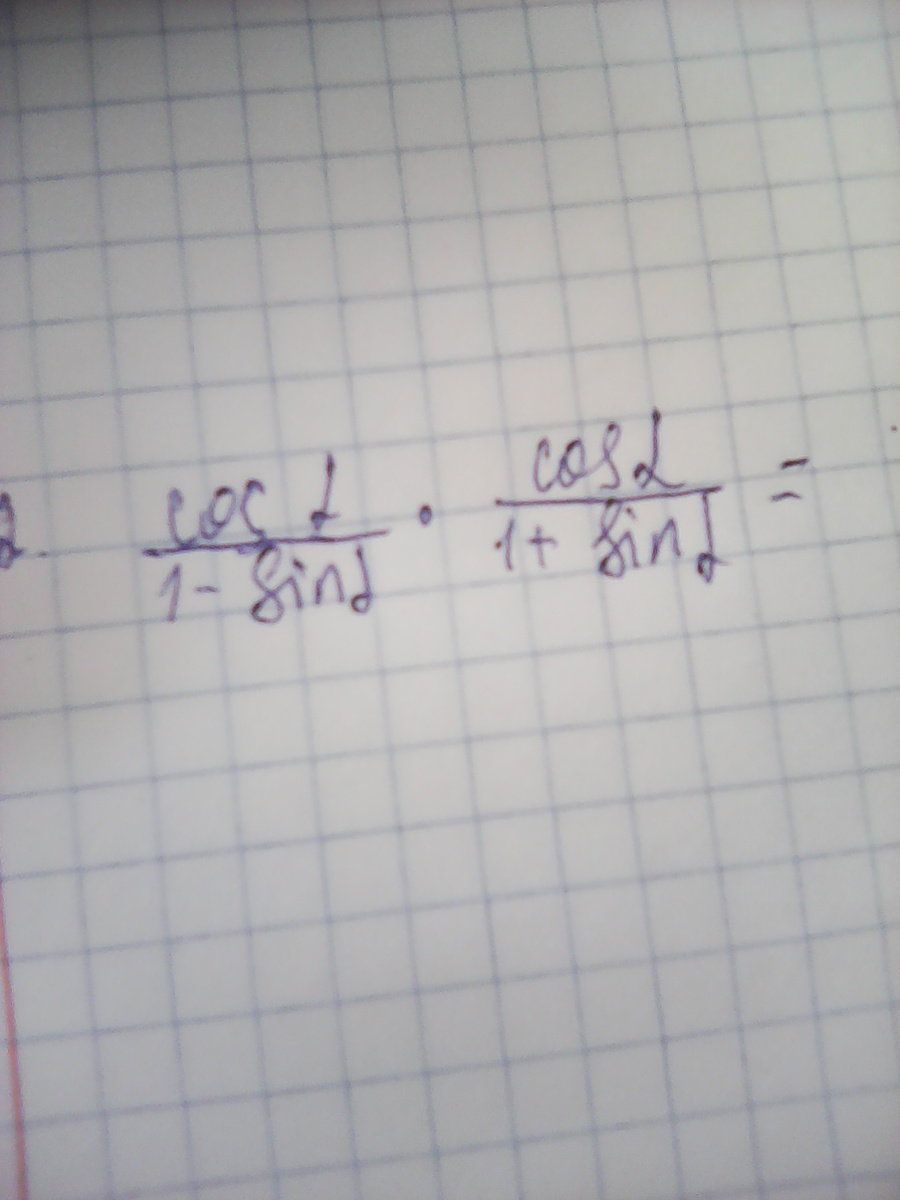 2. cos α / 1 - sin α · cos α / 1 + sin α =